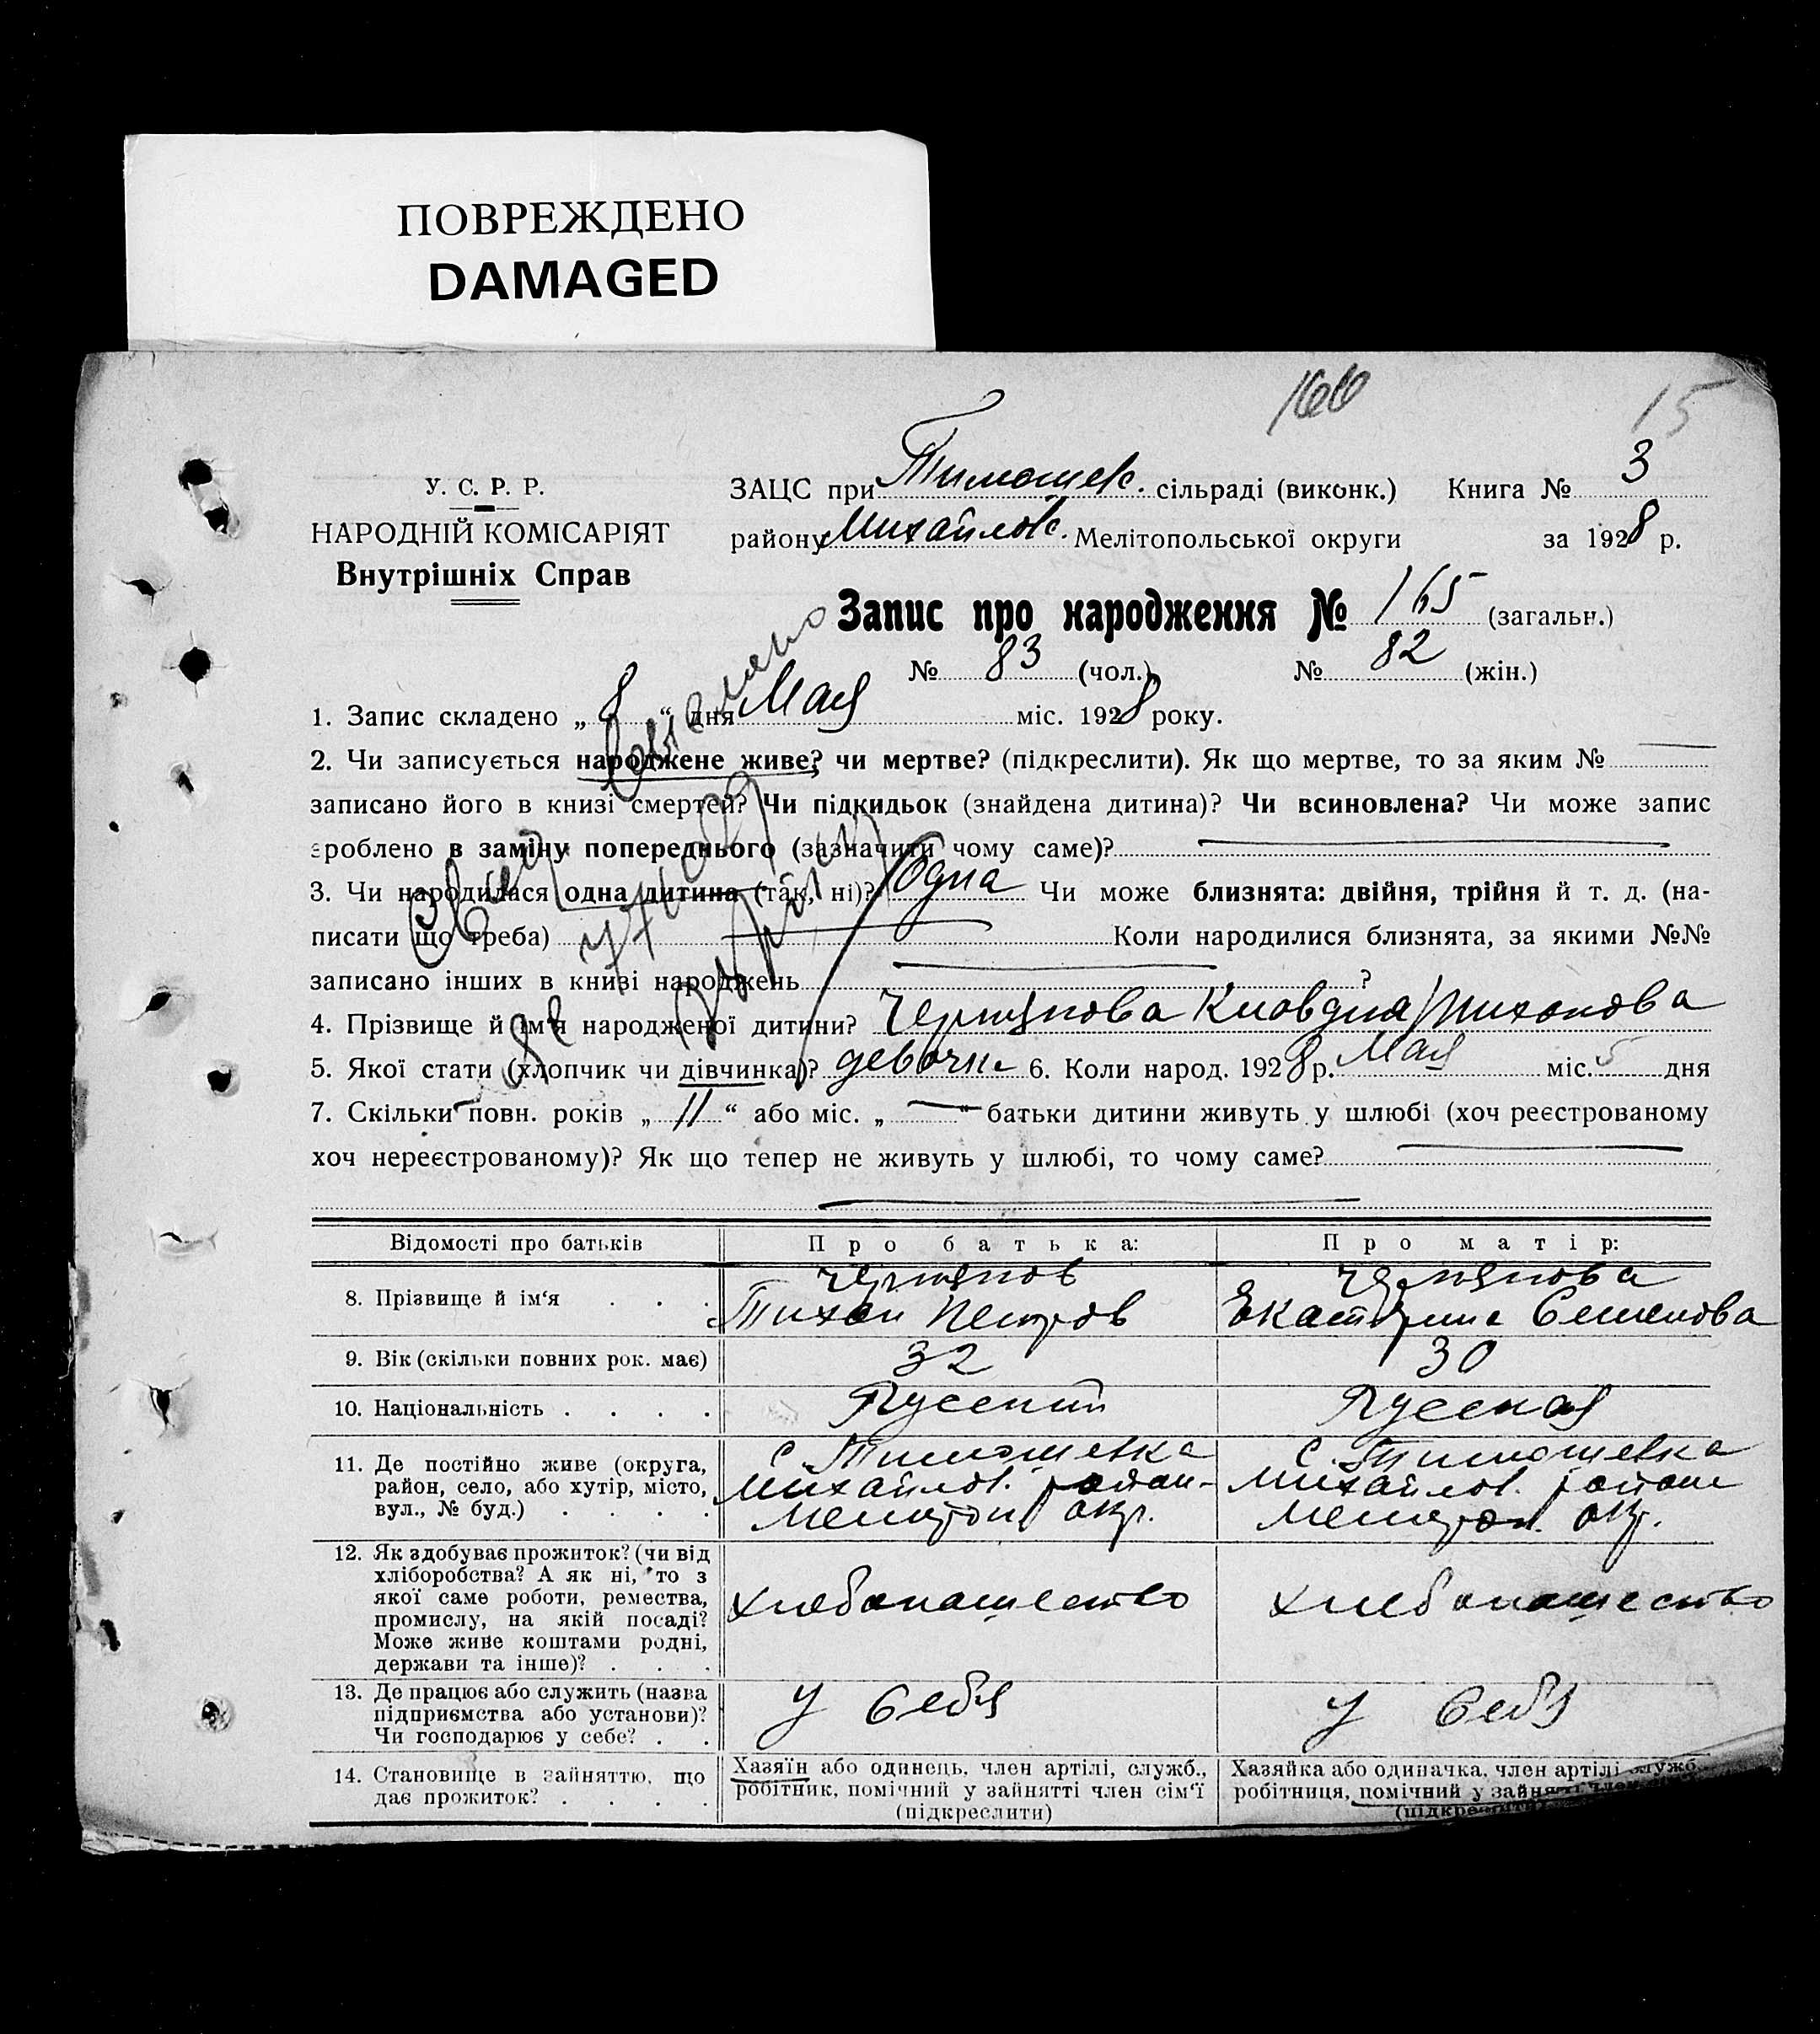 ПОВРЕЖДЕНО
DAMAGED
166
15
У. С. Р. Р.
НАРОДНІЙ КОМІСАРІЯТ
Внутрішніх Справ
ЗАЦС при Тимошев. сільраді (виконк.) Книга № 3
району Михайлов. Мелітопольської округи за 1928 р.
Запис про народження № 165 (загальн.)
№ 83 (чол.) № 82 (жін.)
1. Запис складено „ 8 “ дня Мая міс. 1928 року.
2. Чи записується народжене живе? чи мертве? (підкреслити). Як що мертве, то за яким №
записано його в книзі смертей? Чи підкидьок (знайдена дитина)? Чи всиновлена? Чи може запис
зроблено в заміну попереднього (зазначити чому саме)?
3. Чи народилася одна дитина (так, ні)? Одна Чи може близнята: двійня, трійня й т. д. (на-
писати що треба) Коли народилися близнята, за якими №№
записано інших в книзі народжень ?
4. Прізвище й ім'я народженої дитини? Клавдия Тихонова
5. Якої стати (хлопчик чи дівчинка)? девочка 6. Коли народ. 1928 р. Мая міс. 5 дня
7. Скільки повн. років „ 11 “ або міс. „ “ батьки дитини живуть у шлюбі (хоч реєстрованому
хоч нереєстрованому)? Як що тепер не живуть у шлюбі, то чому саме?
Відомості про батьків Про батька: Про матір:
8. Прізвище й ім'я Тихон Петров Екатерина Семенова
9. Вік (скільки повних рок. має) 32 30
10. Національність Русский Русская
11. Де постійно живе (округа,
район, село, або хутір, місто,
вул., № буд.)
с. Тимошевка
Михайлов. район
Мелитоп. окр.
с. Тимошевка
Михайлов. район
Мелитоп. окр.
12. Як здобуває прожиток? (чи від
хліборобства? А як ні, то з
якої саме роботи, ремества,
промислу, на якій посаді?
Може живе коштами родні,
держави та інше)?
хлебопашество
хлебопашество
13. Де працює або служить (назва
підприємства або установи)?
Чи господарює у себе?
у себя
у себя
14. Становище в зайняттю, що
дає прожиток?
Хазяїн або одинець, член артілі, служб.,
робітник, помічний у зайнятті член сім'ї
(підкреслити)
Хазяйка або одиначка, член артілі служб.
робітниця, помічний у зайнятті член
(підкреслити)